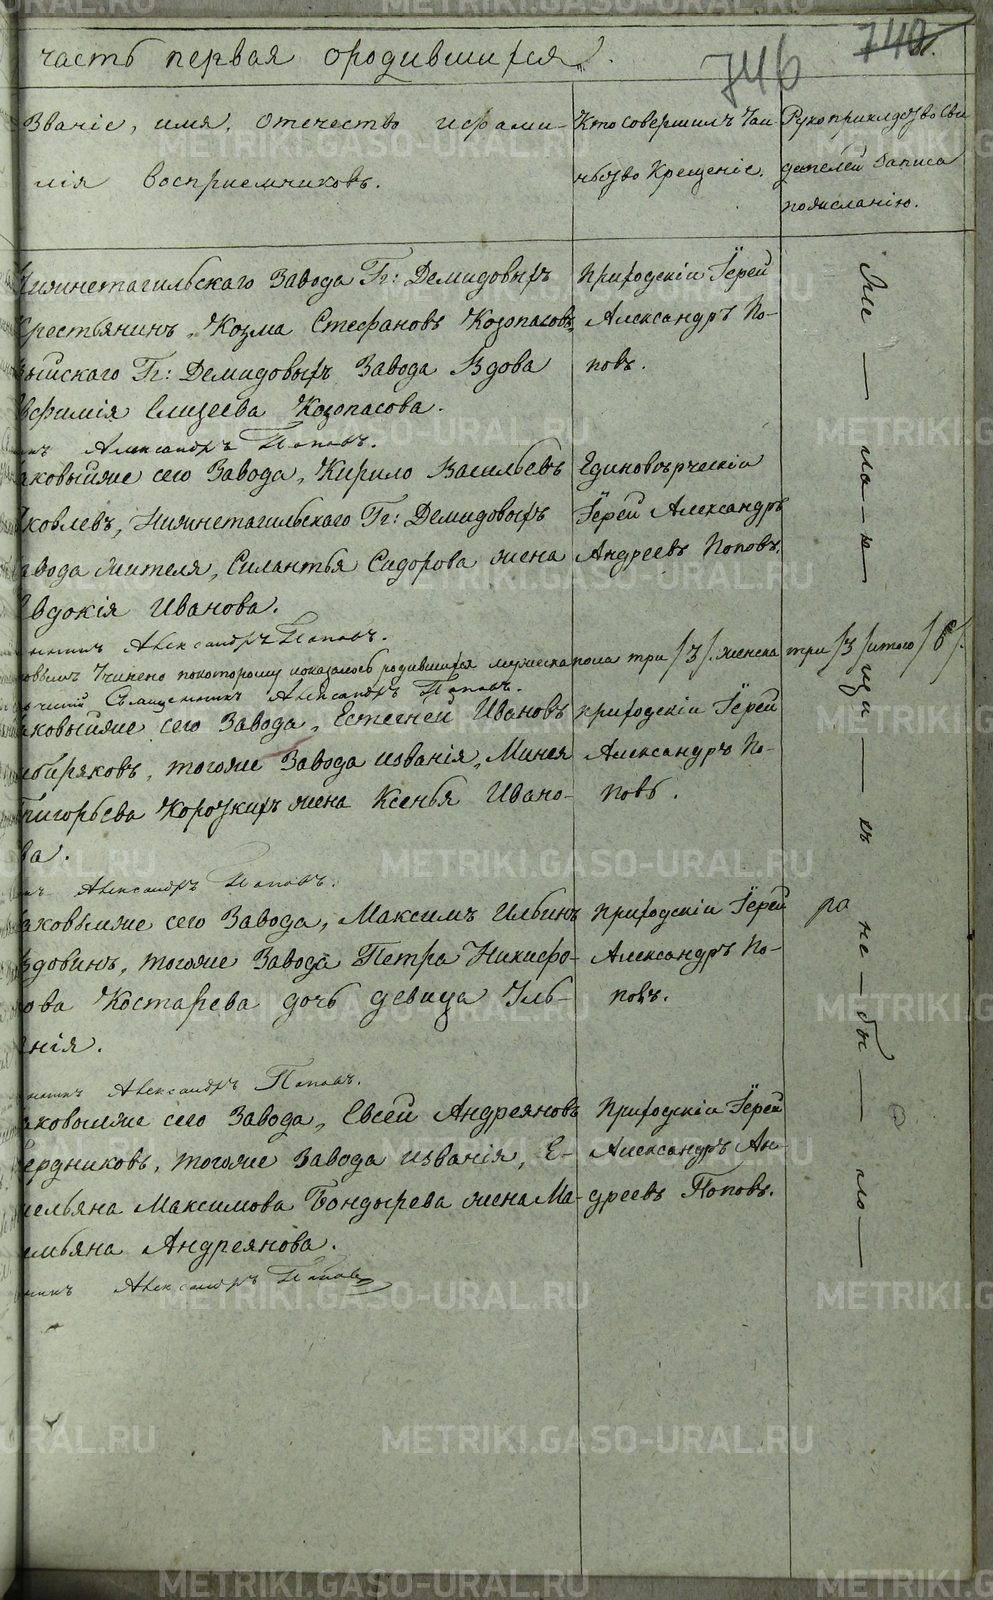 746
740.
часть первая ородившихся.
Званіе, имя, отечество ифами-
лія восприемниковъ.
Кто совершилъ Таи-
нъство Крещеніе.
Рукоприкладство Сви
детелей записа
пожеланію.
Нижнетагильскаго Завода Гг: Демидовыхъ
крестьянинъ, Козма Стефановъ Козопасовъ,
выйскаго Гг: Демидовыхъ Завода Вдова
Евфимія Елизеева Козопасова.
Приходскіи Іерей
Александръ По-
повъ.
Александръ Поповъ.
таковыйже сего Завода, Кирило Васильевъ
Яковлевъ, Нижнетагильскаго Гг: Демидовыхъ
завода жителя, Силантья Сидорова жена
Евдокія Иванова.
Единовѣрческіи
Іерей Александръ
Андреевъ Поповъ.
Александръ Поповъ.
учинено покоторому показалось родившихся мужеска пола три /3/. женска три /3/ итого /6/.
Священникъ Александръ Поповъ.
таковыйже сего Завода, Естегней Ивановъ
Сибиряковъ, тогоже Завода извания, Минея
Григорьева Короткихъ жена Ксенья Ивано-
ва.
приходскіи Іерей
Александръ По-
повъ.
Александръ Поповъ.
таковыйже сего Завода, Максимъ Ильинъ
Вдовинъ, тогоже Завода Петра Никифо-
рова Костарева дочь девица Уль-
янія.
Приходскіи Іерей
Александръ По-
повъ.
Александръ Поповъ.
таковыйже сего Завода, Евсей Андреяновъ
Бердниковъ, тогоже Завода извания, Е-
мельяна Максимова Бондырева жена Ма-
Андреянова.
Приходскіи Іерей
Александръ Ан-
дреевъ Поповъ.
Александръ Поповъ
Же — ла — ю — ща — го ра не — бы — ло —